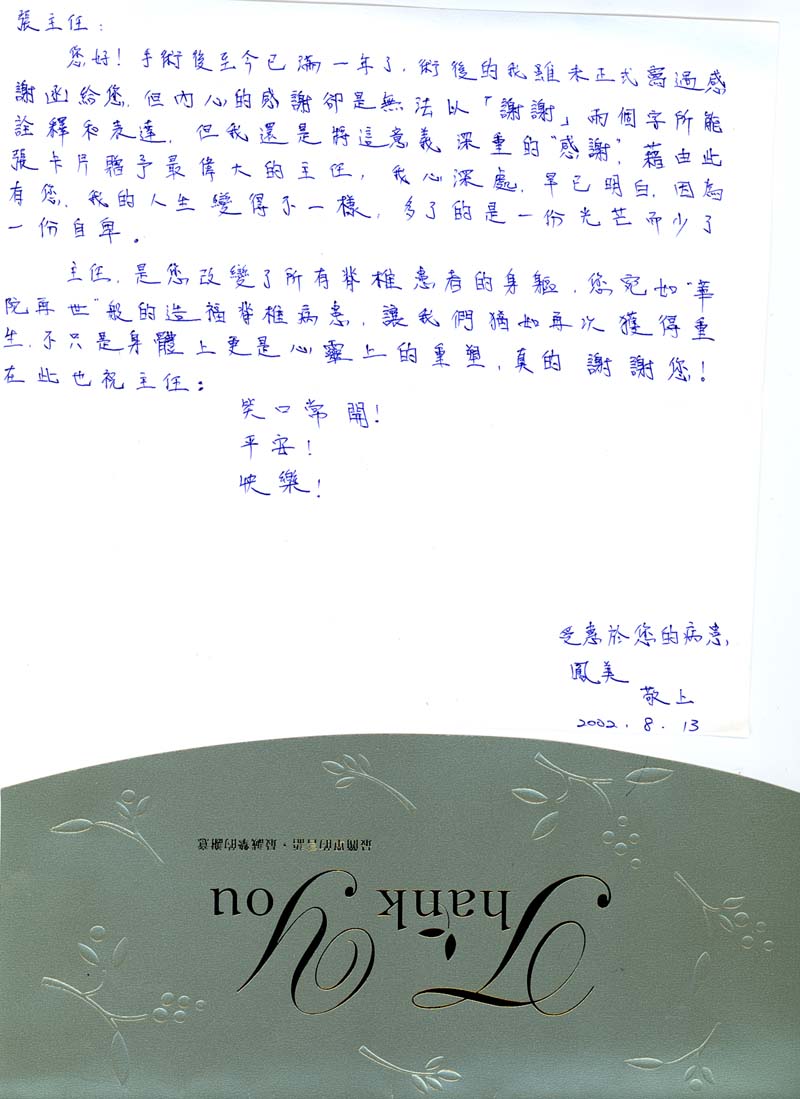 張主任：
您好！手術後至今已滿一年了，術後的我雖未正式寫過感
謝函給您，但內心的感謝卻是無法以「謝謝」兩個字所能
詮釋和表達，但我還是將這意義深重的“感謝”，藉由此
張卡片贈予最偉大的主任，我心深處，早已明白，因為
有您，我的人生變得不一樣，多了的是一份光芒而少了
一份自卑。
主任，是您改變了所有脊椎患者的身軀，您宛如“華
陀再世”般的造福脊椎病患，讓我們猶如再次獲得重
生，不只是身體上更是心靈上的重塑，真的謝謝您！
在此也祝主任：
笑口常開！
平安！
快樂！
受惠於您的病患，
鳳美
敬上
2002.8.13
Thank You
最簡單的言語・最誠摯的謝意